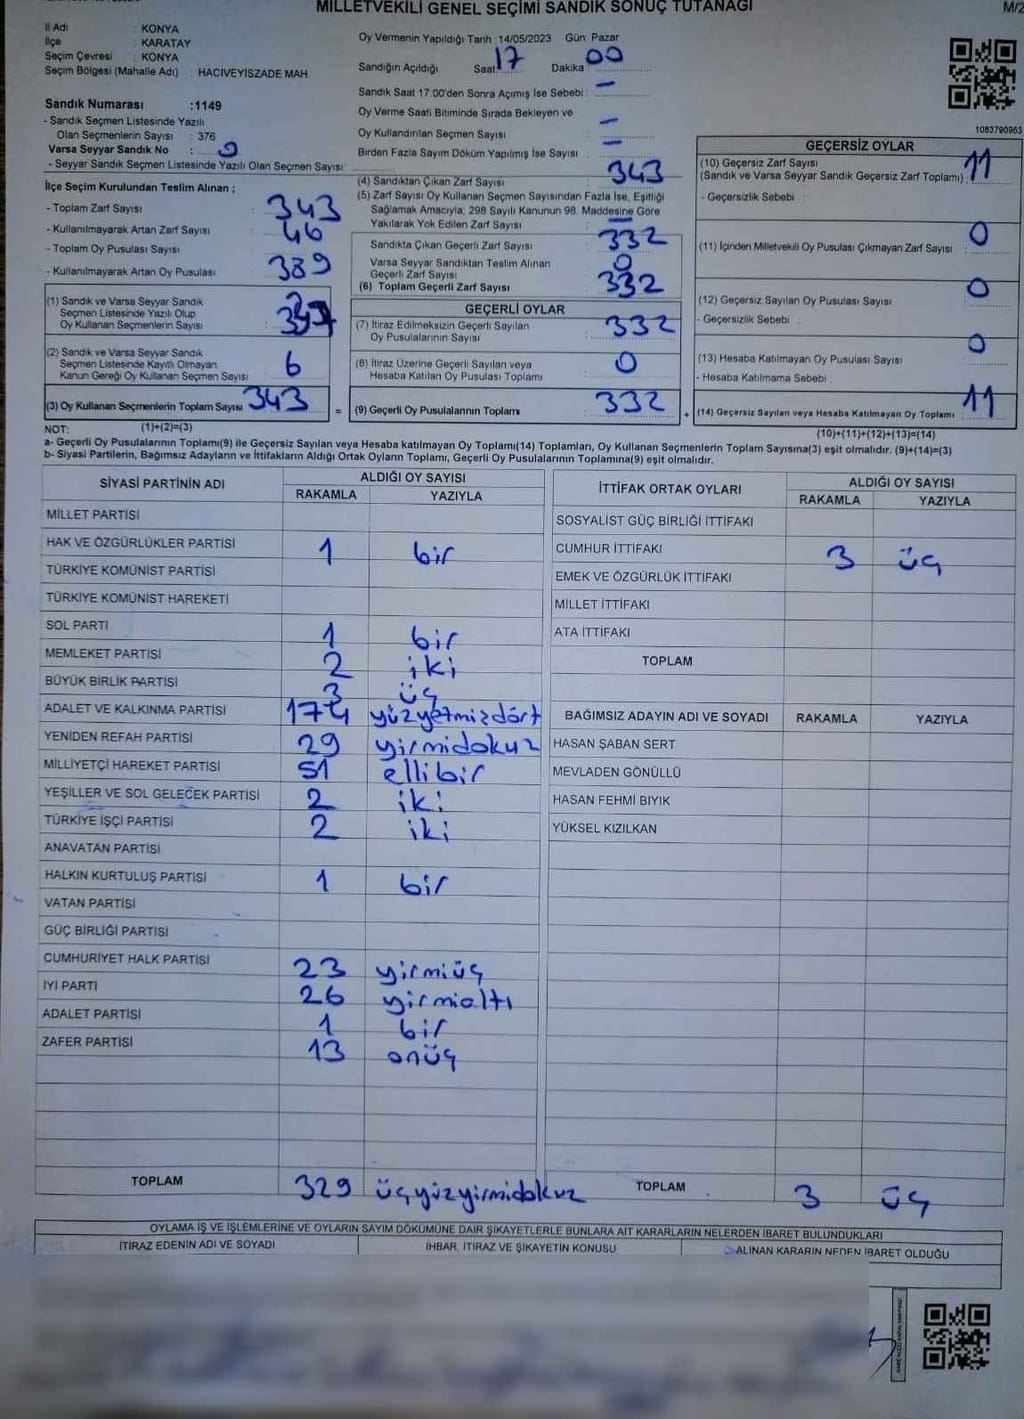 MİLLETVEKİLİ GENEL SEÇİMİ SANDIK SONUÇ TUTANAĞI
M/2
İl Adı : KONYA
İlçe : KARATAY
Seçim Çevresi : KONYA
Seçim Bölgesi (Mahalle Adı) : HACIVEYİSZADE MAH.
Oy Vermenin Yapıldığı Tarih :14/05/2023 Gün: Pazar
Sandığın Açıldığı Saat: 17 Dakika 00
Sandık Saat 17:00'den Sonra Açımış İse Sebebi : –
Oy Verme Saati Bitiminde Sırada Bekleyen ve
Oy Kullandırılan Seçmen Sayısı : –
Birden Fazla Sayım Döküm Yapılmış İse Sayısı : –
Sandık Numarası :1149
- Sandık Seçmen Listesinde Yazılı
Olan Seçmenlerin Sayısı : 376
Varsa Seyyar Sandık No :
- Seyyar Sandık Seçmen Listesinde Yazılı Olan Seçmen Sayısı :
İlçe Seçim Kurulundan Teslim Alınan ;
- Toplam Zarf Sayısı : 343
- Kullanılmayarak Artan Zarf Sayısı : 46
- Toplam Oy Pusulası Sayısı : 389
- Kullanılmayarak Artan Oy Pusulası :
(1) Sandık ve Varsa Seyyar Sandık
Seçmen Listesinde Yazılı Olup
Oy Kullanan Seçmenlerin Sayısı :
(2) Sandık ve Varsa Seyyar Sandık
Seçmen Listesinde Kayıtlı Olmayan
Kanun Gereği Oy Kullanan Seçmen Sayısı : 6
(3) Oy Kullanan Seçmenlerin Toplam Sayısı : 343
(1)+(2)=(3)
(4) Sandıktan Çıkan Zarf Sayısı : 343
(5) Zarf Sayısı Oy Kullanan Seçmen Sayısından Fazla İse, Eşitliği
Sağlamak Amacıyla, 298 Sayılı Kanunun 98. Maddesine Göre
Yakılarak Yok Edilen Zarf Sayısı : –
Sandıkta Çıkan Geçerli Zarf Sayısı : 332
Varsa Seyyar Sandıktan Teslim Alınan
Geçerli Zarf Sayısı : 0
(6) Toplam Geçerli Zarf Sayısı : 332
GEÇERLİ OYLAR
(7) İtiraz Edilmeksizin Geçerli Sayılan
Oy Pusulalarının Sayısı : 332
(8) İtiraz Üzerine Geçerli Sayılan veya
Hesaba Katılan Oy Pusulası Toplamı : 0
= (9) Geçerli Oy Pusulalarının Toplamı : 332
1083790963
GEÇERSİZ OYLAR
(10) Geçersiz Zarf Sayısı
(Sandık ve Varsa Seyyar Sandık Geçersiz Zarf Toplamı) : 11
- Geçersizlik Sebebi :
(11) İçinden Milletvekili Oy Pusulası Çıkmayan Zarf Sayısı : 0
(12) Geçersiz Sayılan Oy Pusulası Sayısı : 0
- Geçersizlik Sebebi :
(13) Hesaba Katılmayan Oy Pusulası Sayısı : 0
- Hesaba Katılmama Sebebi :
+ (14) Geçersiz Sayılan veya Hesaba Katılmayan Oy Toplamı : 11
(10)+(11)+(12)+(13)=(14)
NOT:
a- Geçerli Oy Pusulalarının Toplamı(9) ile Geçersiz Sayılan veya Hesaba katılmayan Oy Toplamı(14) Toplamları, Oy Kullanan Seçmenlerin Toplam Sayısına(3) eşit olmalıdır. (9)+(14)=(3)
b- Siyasi Partilerin, Bağımsız Adayların ve İttifakların Aldığı Ortak Oyların Toplamı, Geçerli Oy Pusulalarının Toplamına(9) eşit olmalıdır.
SİYASİ PARTİNİN ADI
ALDIĞI OY SAYISI
RAKAMLA YAZIYLA
MİLLET PARTİSİ
HAK VE ÖZGÜRLÜKLER PARTİSİ 1 bir
TÜRKİYE KOMÜNİST PARTİSİ
TÜRKİYE KOMÜNİST HAREKETİ
SOL PARTİ 1 bir
MEMLEKET PARTİSİ 2 iki
BÜYÜK BİRLİK PARTİSİ 3 üç
ADALET VE KALKINMA PARTİSİ 174 yüzyetmizdört
YENİDEN REFAH PARTİSİ 29 yirmidokuz
MİLLİYETÇİ HAREKET PARTİSİ 51 ellibir
YEŞİLLER VE SOL GELECEK PARTİSİ 2 iki
TÜRKİYE İŞÇİ PARTİSİ 2 iki
ANAVATAN PARTİSİ
HALKIN KURTULUŞ PARTİSİ 1 bir
VATAN PARTİSİ
GÜÇ BİRLİĞİ PARTİSİ
CUMHURİYET HALK PARTİSİ 23 yirmiüç
İYİ PARTİ 26 yirmialtı
ADALET PARTİSİ 1 bir
ZAFER PARTİSİ 13 onüç
TOPLAM 329 üçyüzyirmidokuz
İTTİFAK ORTAK OYLARI
ALDIĞI OY SAYISI
RAKAMLA YAZIYLA
SOSYALİST GÜÇ BİRLİĞİ İTTİFAKI
CUMHUR İTTİFAKI 3 üç
EMEK VE ÖZGÜRLÜK İTTİFAKI
MİLLET İTTİFAKI
ATA İTTİFAKI
TOPLAM
BAĞIMSIZ ADAYIN ADI VE SOYADI RAKAMLA YAZIYLA
HASAN ŞABAN SERT
MEVLADEN GÖNÜLLÜ
HASAN FEHMİ BIYIK
YÜKSEL KIZILKAN
TOPLAM 3 üç
OYLAMA İŞ VE İŞLEMLERİNE VE OYLARIN SAYIM DÖKÜMÜNE DAİR ŞİKAYETLERLE BUNLARA AİT KARARLARIN NELERDEN İBARET BULUNDUKLARI
İTİRAZ EDENİN ADI VE SOYADI
İHBAR, İTİRAZ VE ŞİKAYETİN KONUSU
ALINAN KARARIN NEDEN İBARET OLDUĞU